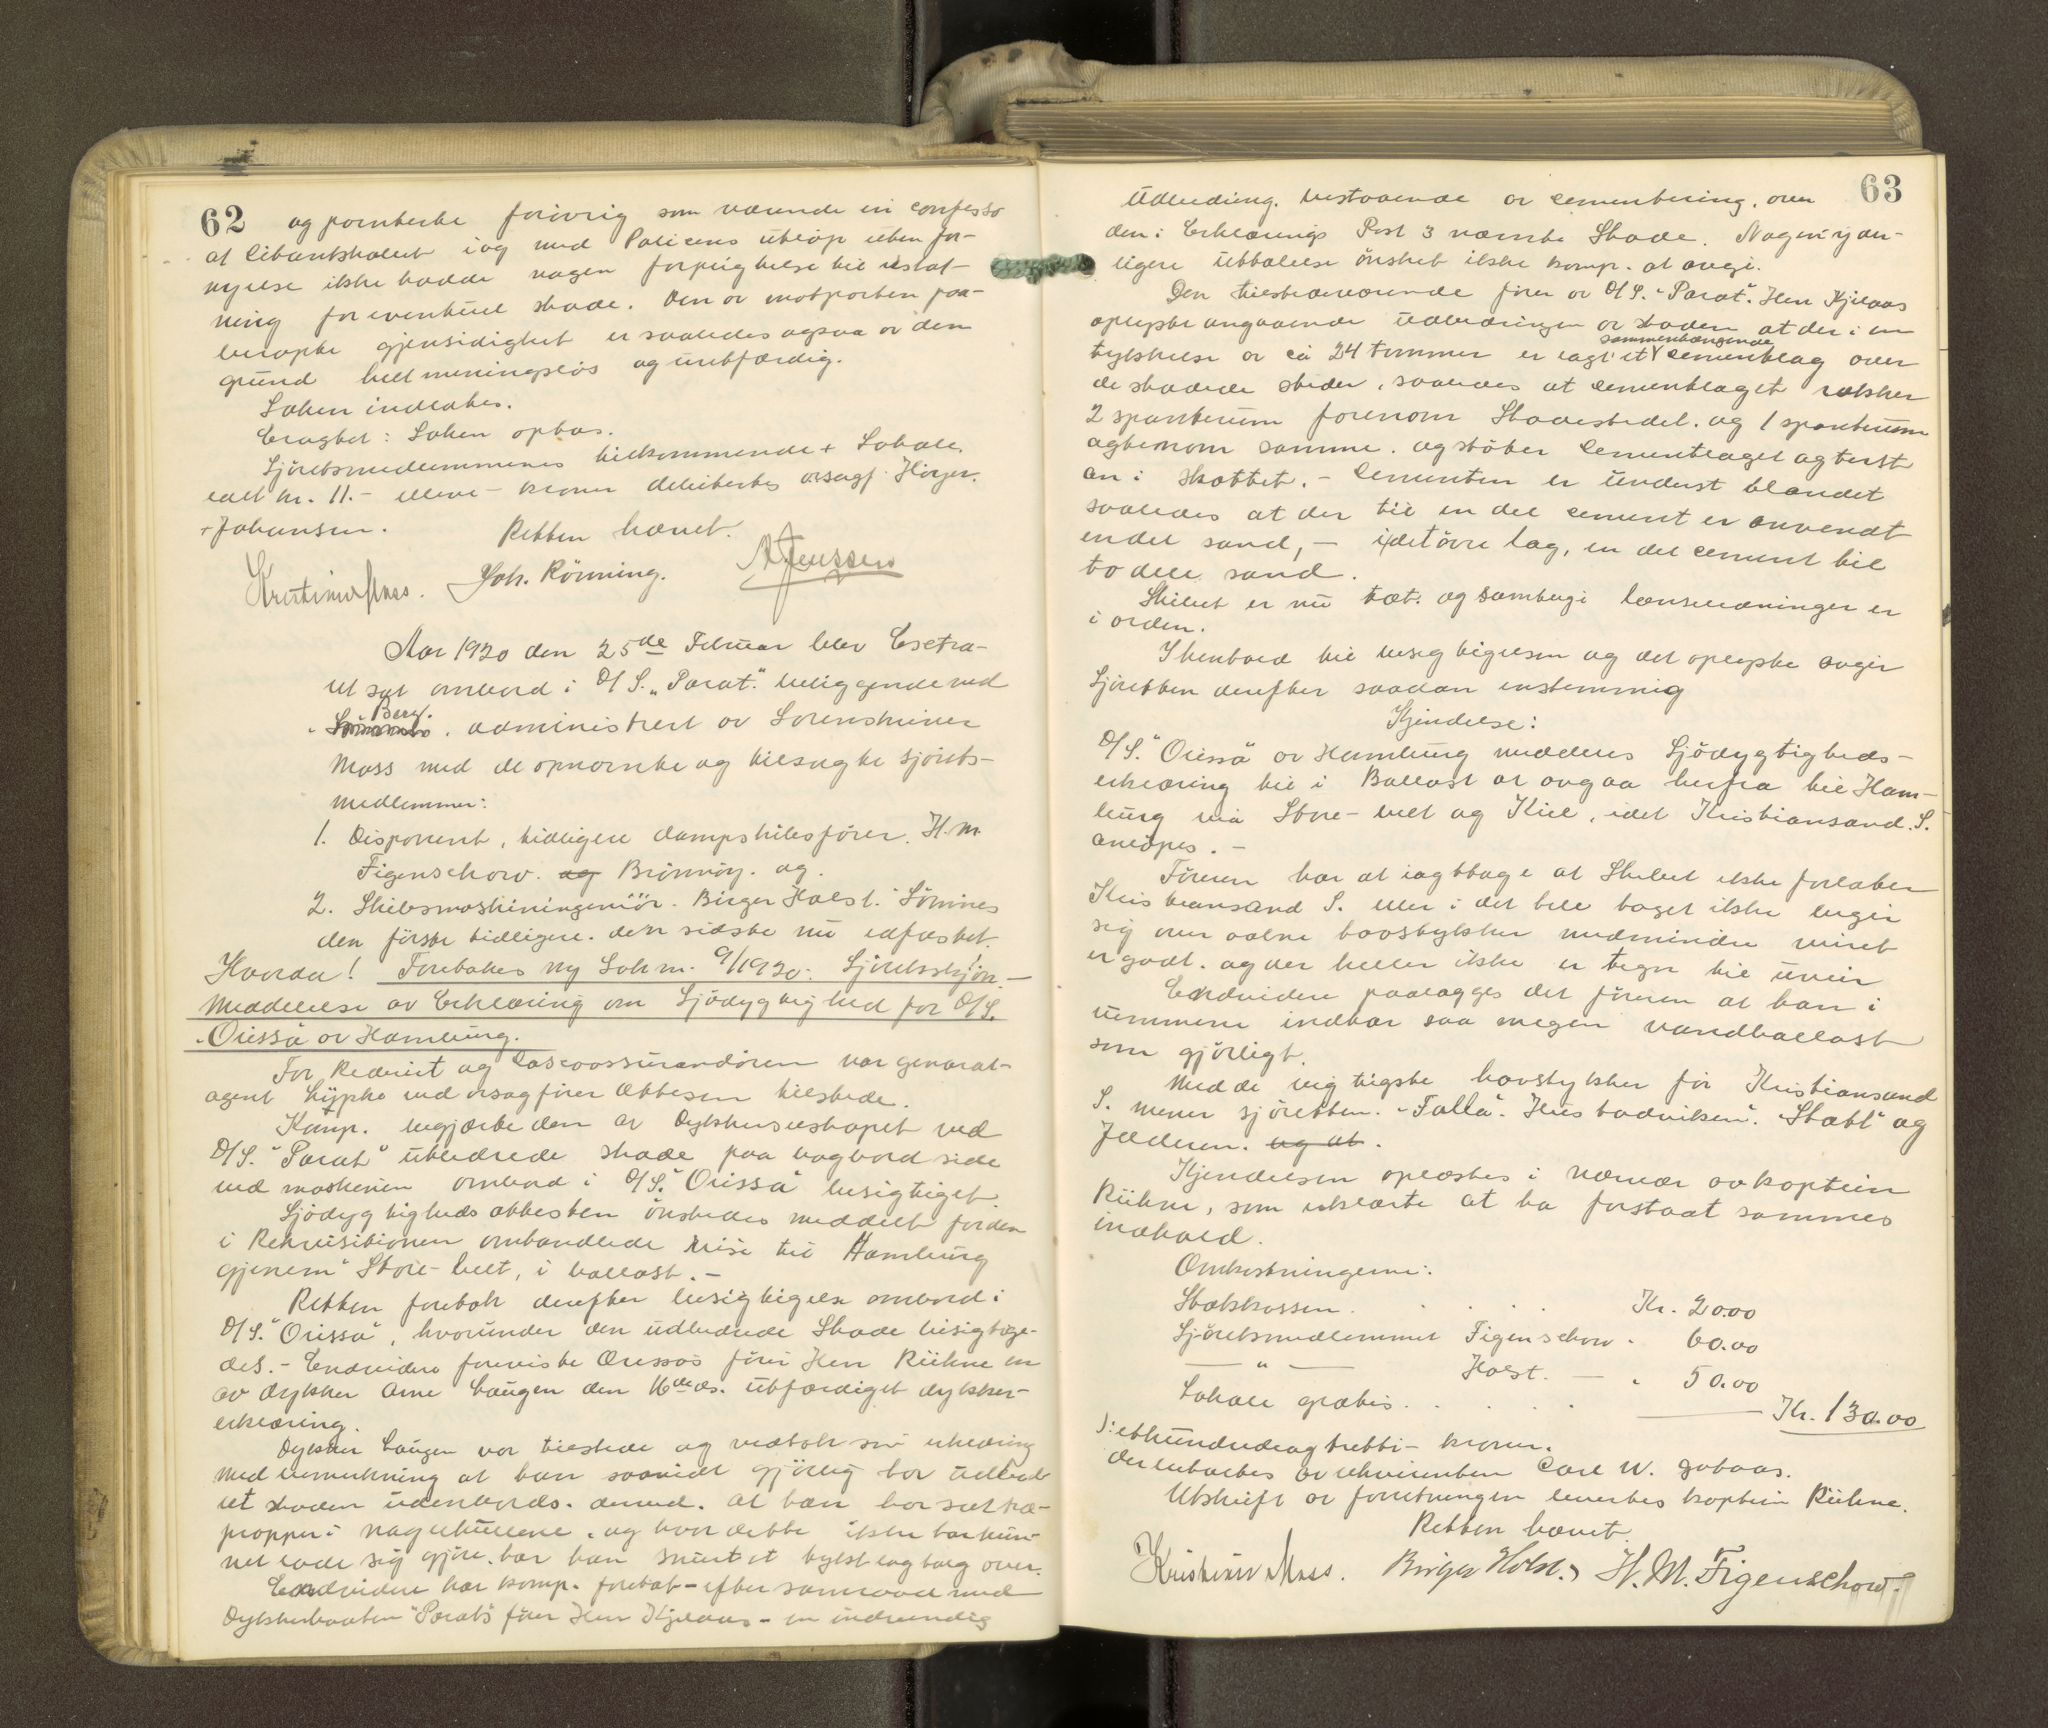 62
og paaberbte forøvrig som værende in confesso
at Citantskabet i og med Policens utløp uten for-
nyelse ikke hadde nogen forpligtelse til erstat-
ning for eventuel skade. Den av motparten paa-
beropte gjensidighet er saaledes ogsaa av den
grund helt meningsløs og uretfærdig.
Saken indlates.
Eragtet: Saken optas.
Sjøretsmedlemmenes tilkommende + Lokale.
ialt kr. 11.- elleve- kroner debitertes orsagf. Höyer.
+ Johansen.
Retten hævet.
Kristinius Maas. Joh. Rönning. A Jenssen
Aar 1920 den 25de Februar blev Extra-
ret sat ombord i D/S. "Parat". beliggende ved
Berg. administrert av Sorenskriver
Maas med de opnævnte og tilsagte sjørets-
medlemmer:
1. Disponent, tidligere dampskibsfører, H. M.
Figenschow. og Brönnöy. og
2. Skibsmaskiningeniör. Birger Holst. Sömnes
den første tidligere. den sidste nu edfæstet.
Hvorda! Foretokes ny Sak nr. 9/1920: Sjöretsskjön.-
Meddelelse av Erklæring om Sjödygtighed for D/S.
"Orissa" av Hamburg.
For Rederiet og Cascoassurandören var general-
agent Lypke ved orsagfører Abbesen tilstede.
Komp. begjærte den av Dykkerselskapet ved
D/S. "Parat" utbedrede skade paa bagbord side
ved maskinen ombord i D/S. "Orissa" besigtiget.
Sjödygtighedsattesten önskedes meddelt for den
i Rekvisitionen omhandlede reise til Hamburg
gjenem Store-belt, i ballast.-
Retten foretok derefter besigtigelse ombord i
D/S. "Orissa", hvorunder den udbedrede Skade besigtige-
des.- Endvidere foreviste Orissas förer Herr Kühne en
av dykker Arne Laugen den 16de ds. utfærdiget dykker-
erklæring.
Dykker Laugen var tilstede og vedtok sin erklæring
med bemerkning at han saavidt gjörlig har udbed-
ret skaden udenbords. derved. at han har sat træ-
propper i naglehullene, og hvor dette ikke har kun-
net lade sig gjöre, har han smurt et tykt lag talg over.
Endvidere har komp. foretat- efter samraad med
Dykkerbaaten "Parat's" förer Herr Kjelaas - en indvendig
63
Udbedring. bestaaende av cementering, over
den i Erklærings Post 3 nævnte Skade. Nogen yder-
ligere uttalelse önsket ikke komp. at avgi.
Den tilstedeværende förer av D/S. "Parat". Herr Kjelaas
oplyste angaaende udbedringen av skaden at der i en
tykkelse av ca 24 tommer er lagt et sammenhængende cementlag over
de skadede steder, saaledes at cementlaget rækker
2 spanterum forenom Skadestedet. og 1 spanterum
agtenom samme. og stöter Cementlaget agterst
an i skottet.- Cementen er underst blandet
saaledes at der til en del cement er anvendt
en del sand,- i det övre lag, en del cement til
to dele sand.
Skibet er nu tæt. og samtlige lænseledninger er
i orden.
I henhold til besigtigelsen og det oplyste avgir
Sjöretten derefter saadan enstemmig
Kjendelse:
D/S. "Orissa" av Hamburg meddeles Sjödygtigheds-
erklæring til i Ballast at avgaa herfra til Ham-
burg via Store-belt og Kiel, idet Kristiansand. S.
anlöpes.-
Föreren har at iagttage at Skibet ikke forlater
Kristiansand S. eller i det hele taget ikke begir
sig over aapne havstykker medmindre veiret
er godt. og der heller ikke er tegn til uveir
Endvidere paalægges det föreren at han i
rummene indtar saa megen vandballast
som gjörligt.
Med de vigtigste havstykker för Kristiansand
S. mener sjöretten. "Folla". Hustadviken". "Statt" og
Jæderen. og at.
Kjendelsen oplæstes i nærvær av kaptein
Kühne, som erklærte at ha forstaat sammes
indhold.
Omkostningerne:
Statskassen. . . . . Kr. 20.00
Sjöretsmedlemmet Figenschow. 60.00
— " — Holst. — . 50.00
Lokale gratis. . . . . Kr. 130.00
): ethundredeogtretti- kroner.
der betaltes av rekvirenten Carl W.
Utskrift av forretningen levertes kaptein Kühne.
Retten hævet.
Kristinius Maas. Birger Holst. H. M. Figenschow.